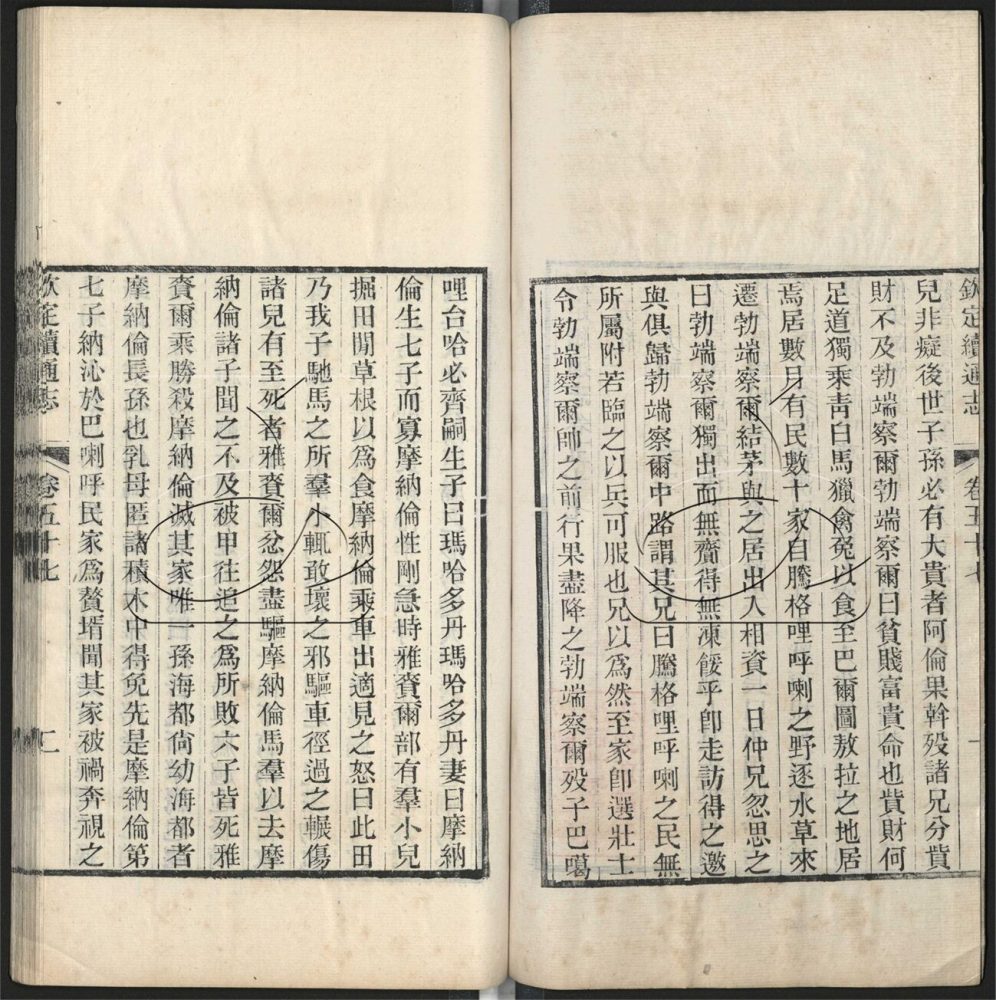 欽定續通志 卷五十七 一
兒非癡後世子孫必有大貴者阿倫果斡歿諸兄分貲
財不及勃端察爾勃端察爾曰貧賤富貴命也貲財何
足道獨乘青白馬獵禽兔以食至巴爾圖敖拉之地居
焉居數月有民數十家自騰格哩呼喇之野逐水草來
遷勃端察爾結茅與之居出入相資一日仲兄忽思之
曰勃端察爾獨出而無齎得無凍餒乎卽走訪得之邀
與俱歸勃端察爾中路謂其兄曰騰格哩呼喇之民無
所屬附若臨之以兵可服也兄以爲然至家卽選壯士
令勃端察爾帥之前行果盡降之勃端察爾歿子巴噶
哩台哈必齊嗣生子曰瑪哈多丹瑪哈多丹妻曰摩納
倫生七子而寡摩納倫性剛急時雅賚爾部有羣小兒
掘田閒草根以爲食摩納倫乘車出適見之怒曰此田
乃我子馳馬之所羣小輒敢壞之邪驅車徑過之輾傷
諸兒有至死者雅賚爾忿怨盡驅摩納倫馬羣以去摩
納倫諸子聞之不及被甲往追之爲所敗六子皆死雅
賚爾乘勝殺摩納倫滅其家唯一孫海都尙幼海都者
摩納倫長孫也乳母匿諸積木中得免先是摩納倫第
七子納沁於巴喇呼民家爲贅壻聞其家被禍奔視之
欽定續通志 卷五十七